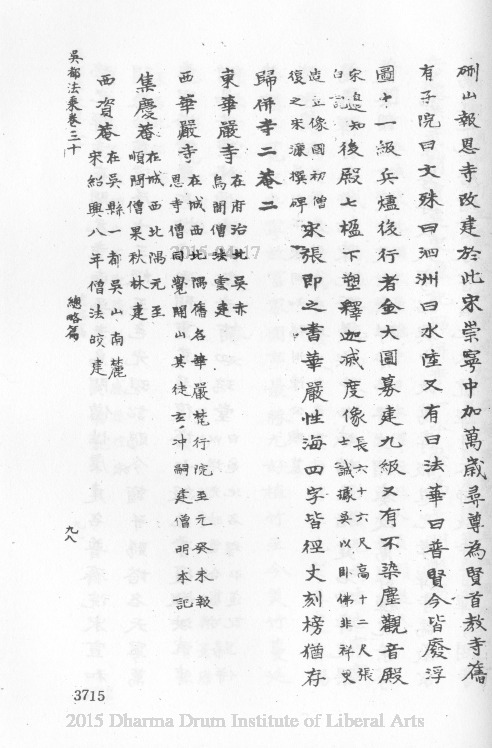 硎山報恩寺改建於此宋崇寧中加萬歲尋尊為賢首教寺舊
有子院曰文殊曰泗洲曰水陸又有曰法華曰普賢今皆廢浮
圖十一級兵燼後行者金大圓募建九級又有不染塵觀音殿
宋邁知白記後殿七楹下塑釋迦滅度像長六十六尺高十二尺張士誠據吳以卧佛非祥更
造立像國初僧復之宋濂撰碑宋張即之書華嚴性海四字皆徑丈刻榜猶存
歸併寺二菴二
東華嚴寺在府治北吳赤烏間僧法雲建
西華嚴寺在城西北隅舊名華嚴梵行院至元癸未報恩寺僧同覺開山其徒玄沖嗣建僧明本記
集慶菴在城西北隅元至順間僧果秋林建
西資菴在吳縣一都吳山南麓宋紹興八年僧法皎建
吳都法乘卷三十
總略篇
九八
3715
2015-04-17
2015 Dharma Drum Institute of Liberal Arts